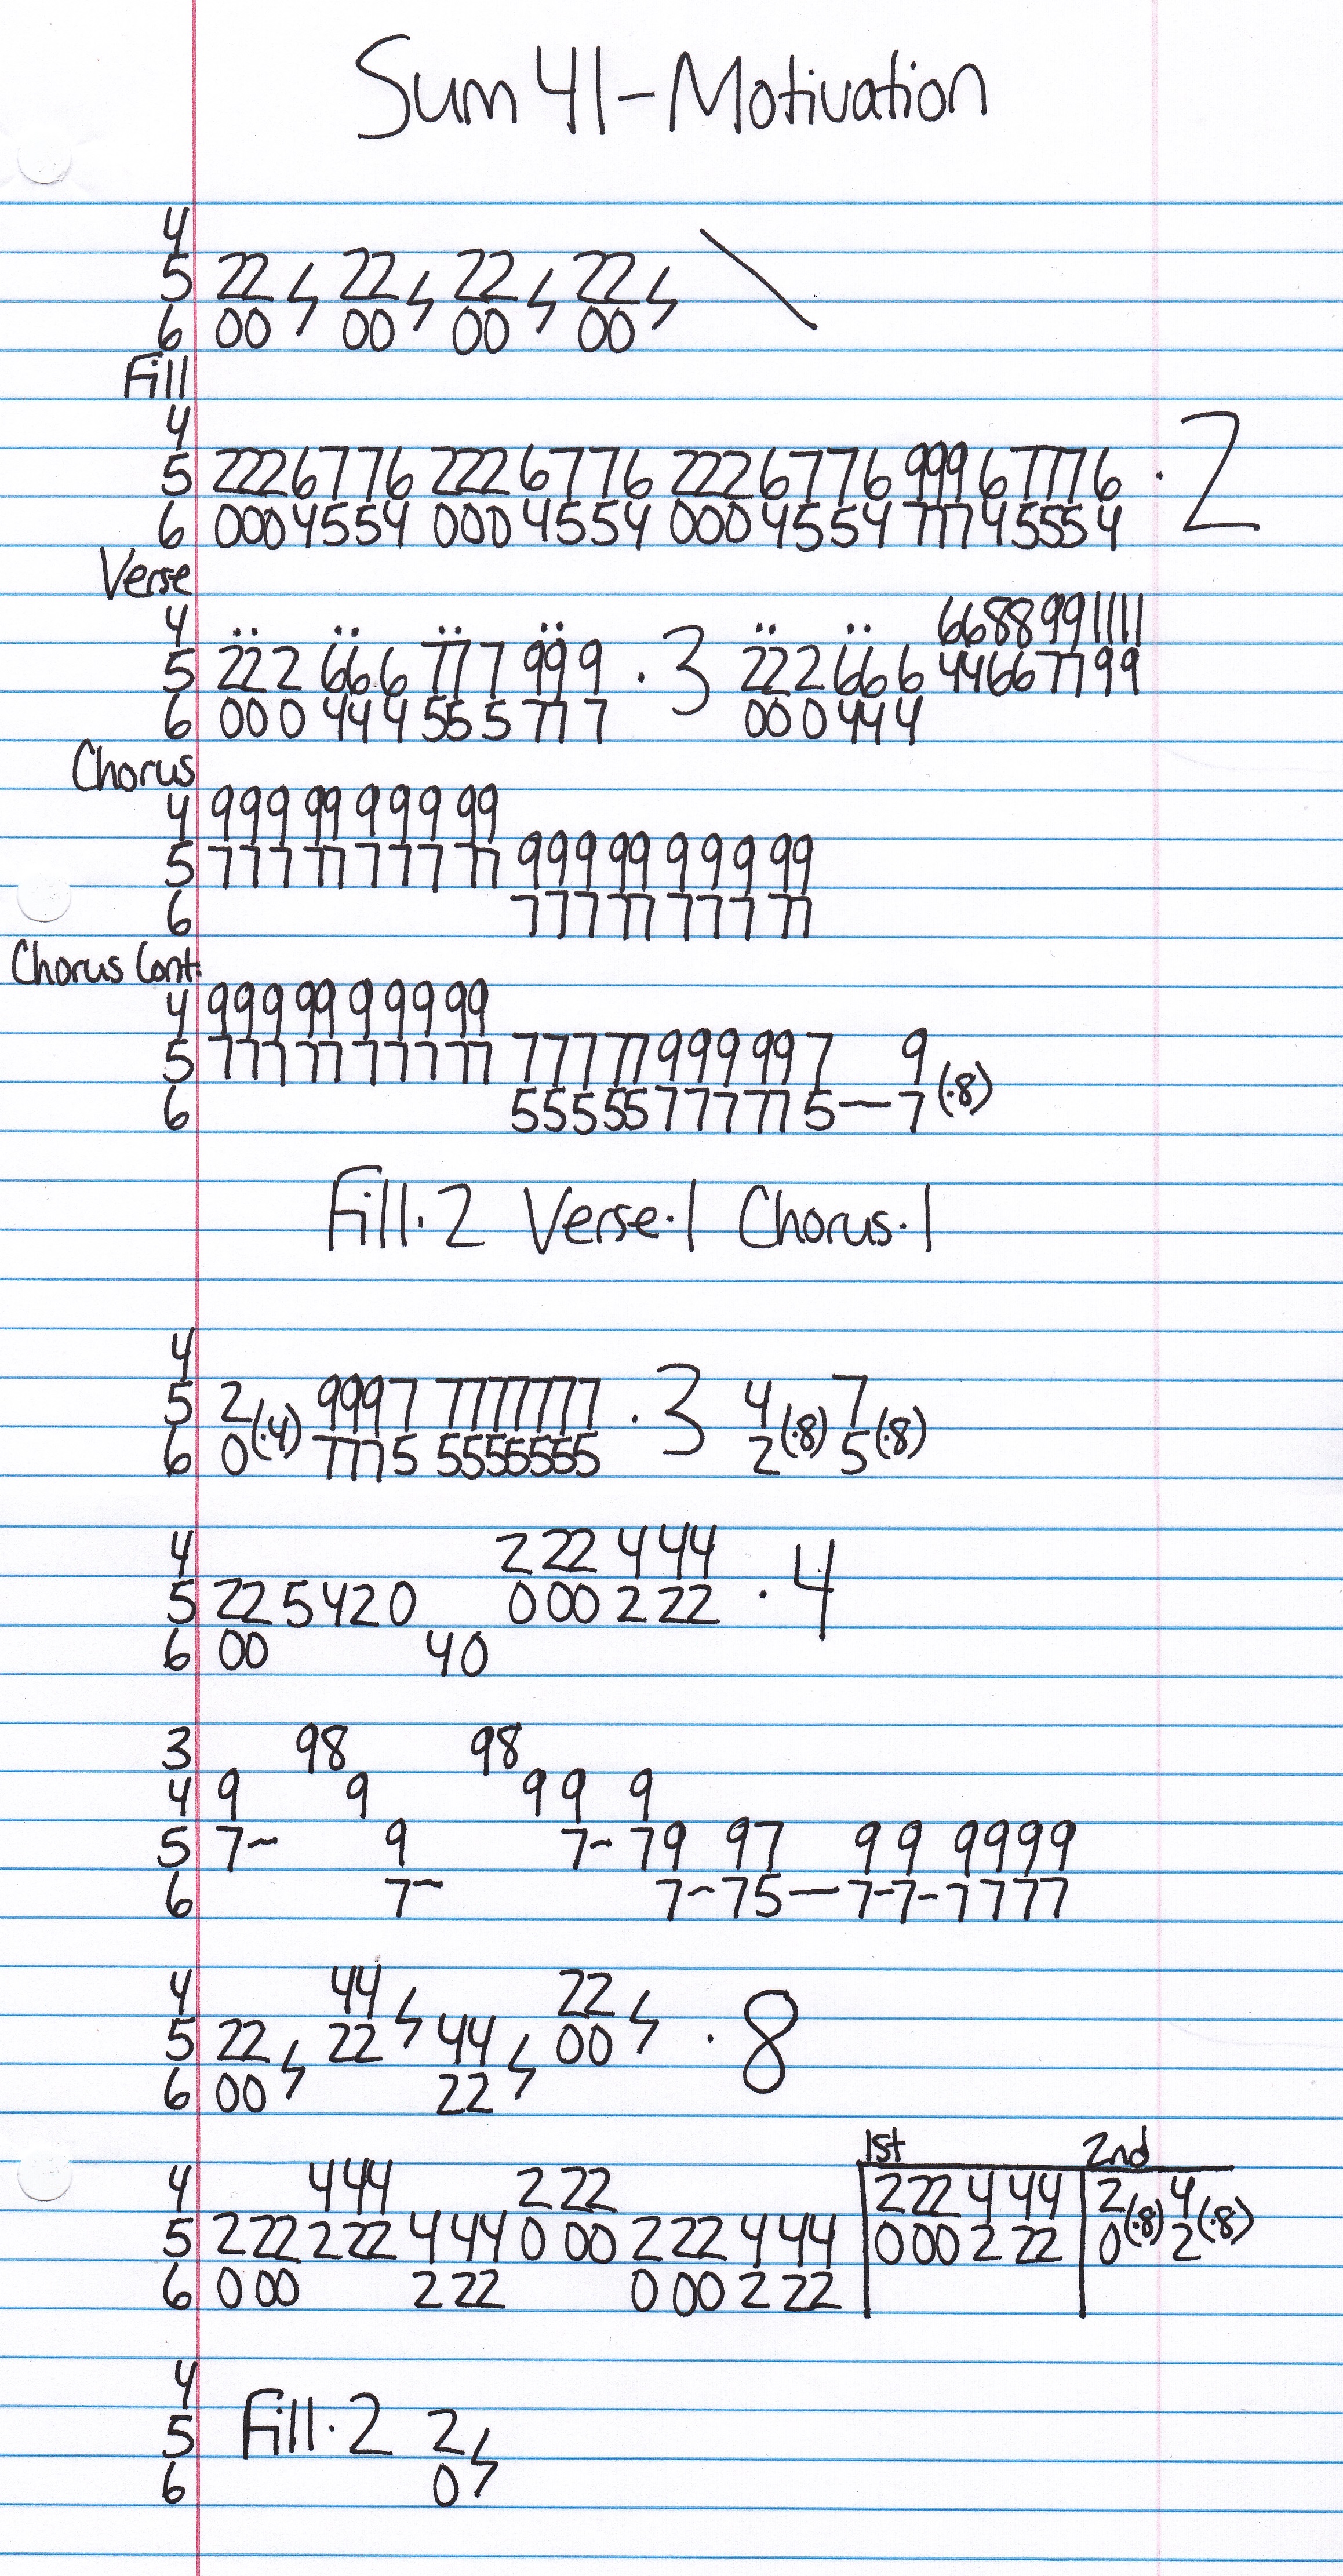 Sum 41 - Motivation
4
5 22 22 22 22
6 00 00 00 00
Fill
4
5 2226776 2226776 2226776 99967776 · 2
6 0004554 0004554 0004554 77745554
Verse
4 6688991111
5 22 2 66 6 77 7 99 9 · 3 22 2 66 6 44667799
6 00 0 44 4 55 5 77 7 00 0 44 4
Chorus
4 999 99 9 9 9 99
5 777 77 7 7 7 77 999 99 9 9 9 99
6 777 77 7 7 7 77
Chorus Cont.
4 999 99 9 9 9 99
5 777 77 7 7 7 77 7777799999 7 9
6 5555577777 5—7 (·8)
Fill·2 Verse·1 Chorus·1
4
5 2 9997 7777777 · 3 4 7
6 0 (·4) 7775 5555555 2 (·8) 5 (·8)
4 2 22 4 44
5 22 5 4 2 0 0 00 2 22 · 4
6 00 4 0
3 98 98
4 9 9 9 9 9
5 7~ 9 7~ 79 97 9 9 9999
6 7~ 7~75—7-7-7777
4 44 22
5 22 22 44 00 · 8
6 00 22
1st 2nd
4 4 44 2 22 2 22 4 44 2 4
5 2 22 2 22 4 44 0 00 2 22 4 44 0 00 2 22 0 (·8) 2 (·8)
6 0 00 2 22 0 00 2 22
4
5 Fill·2 2
6 0